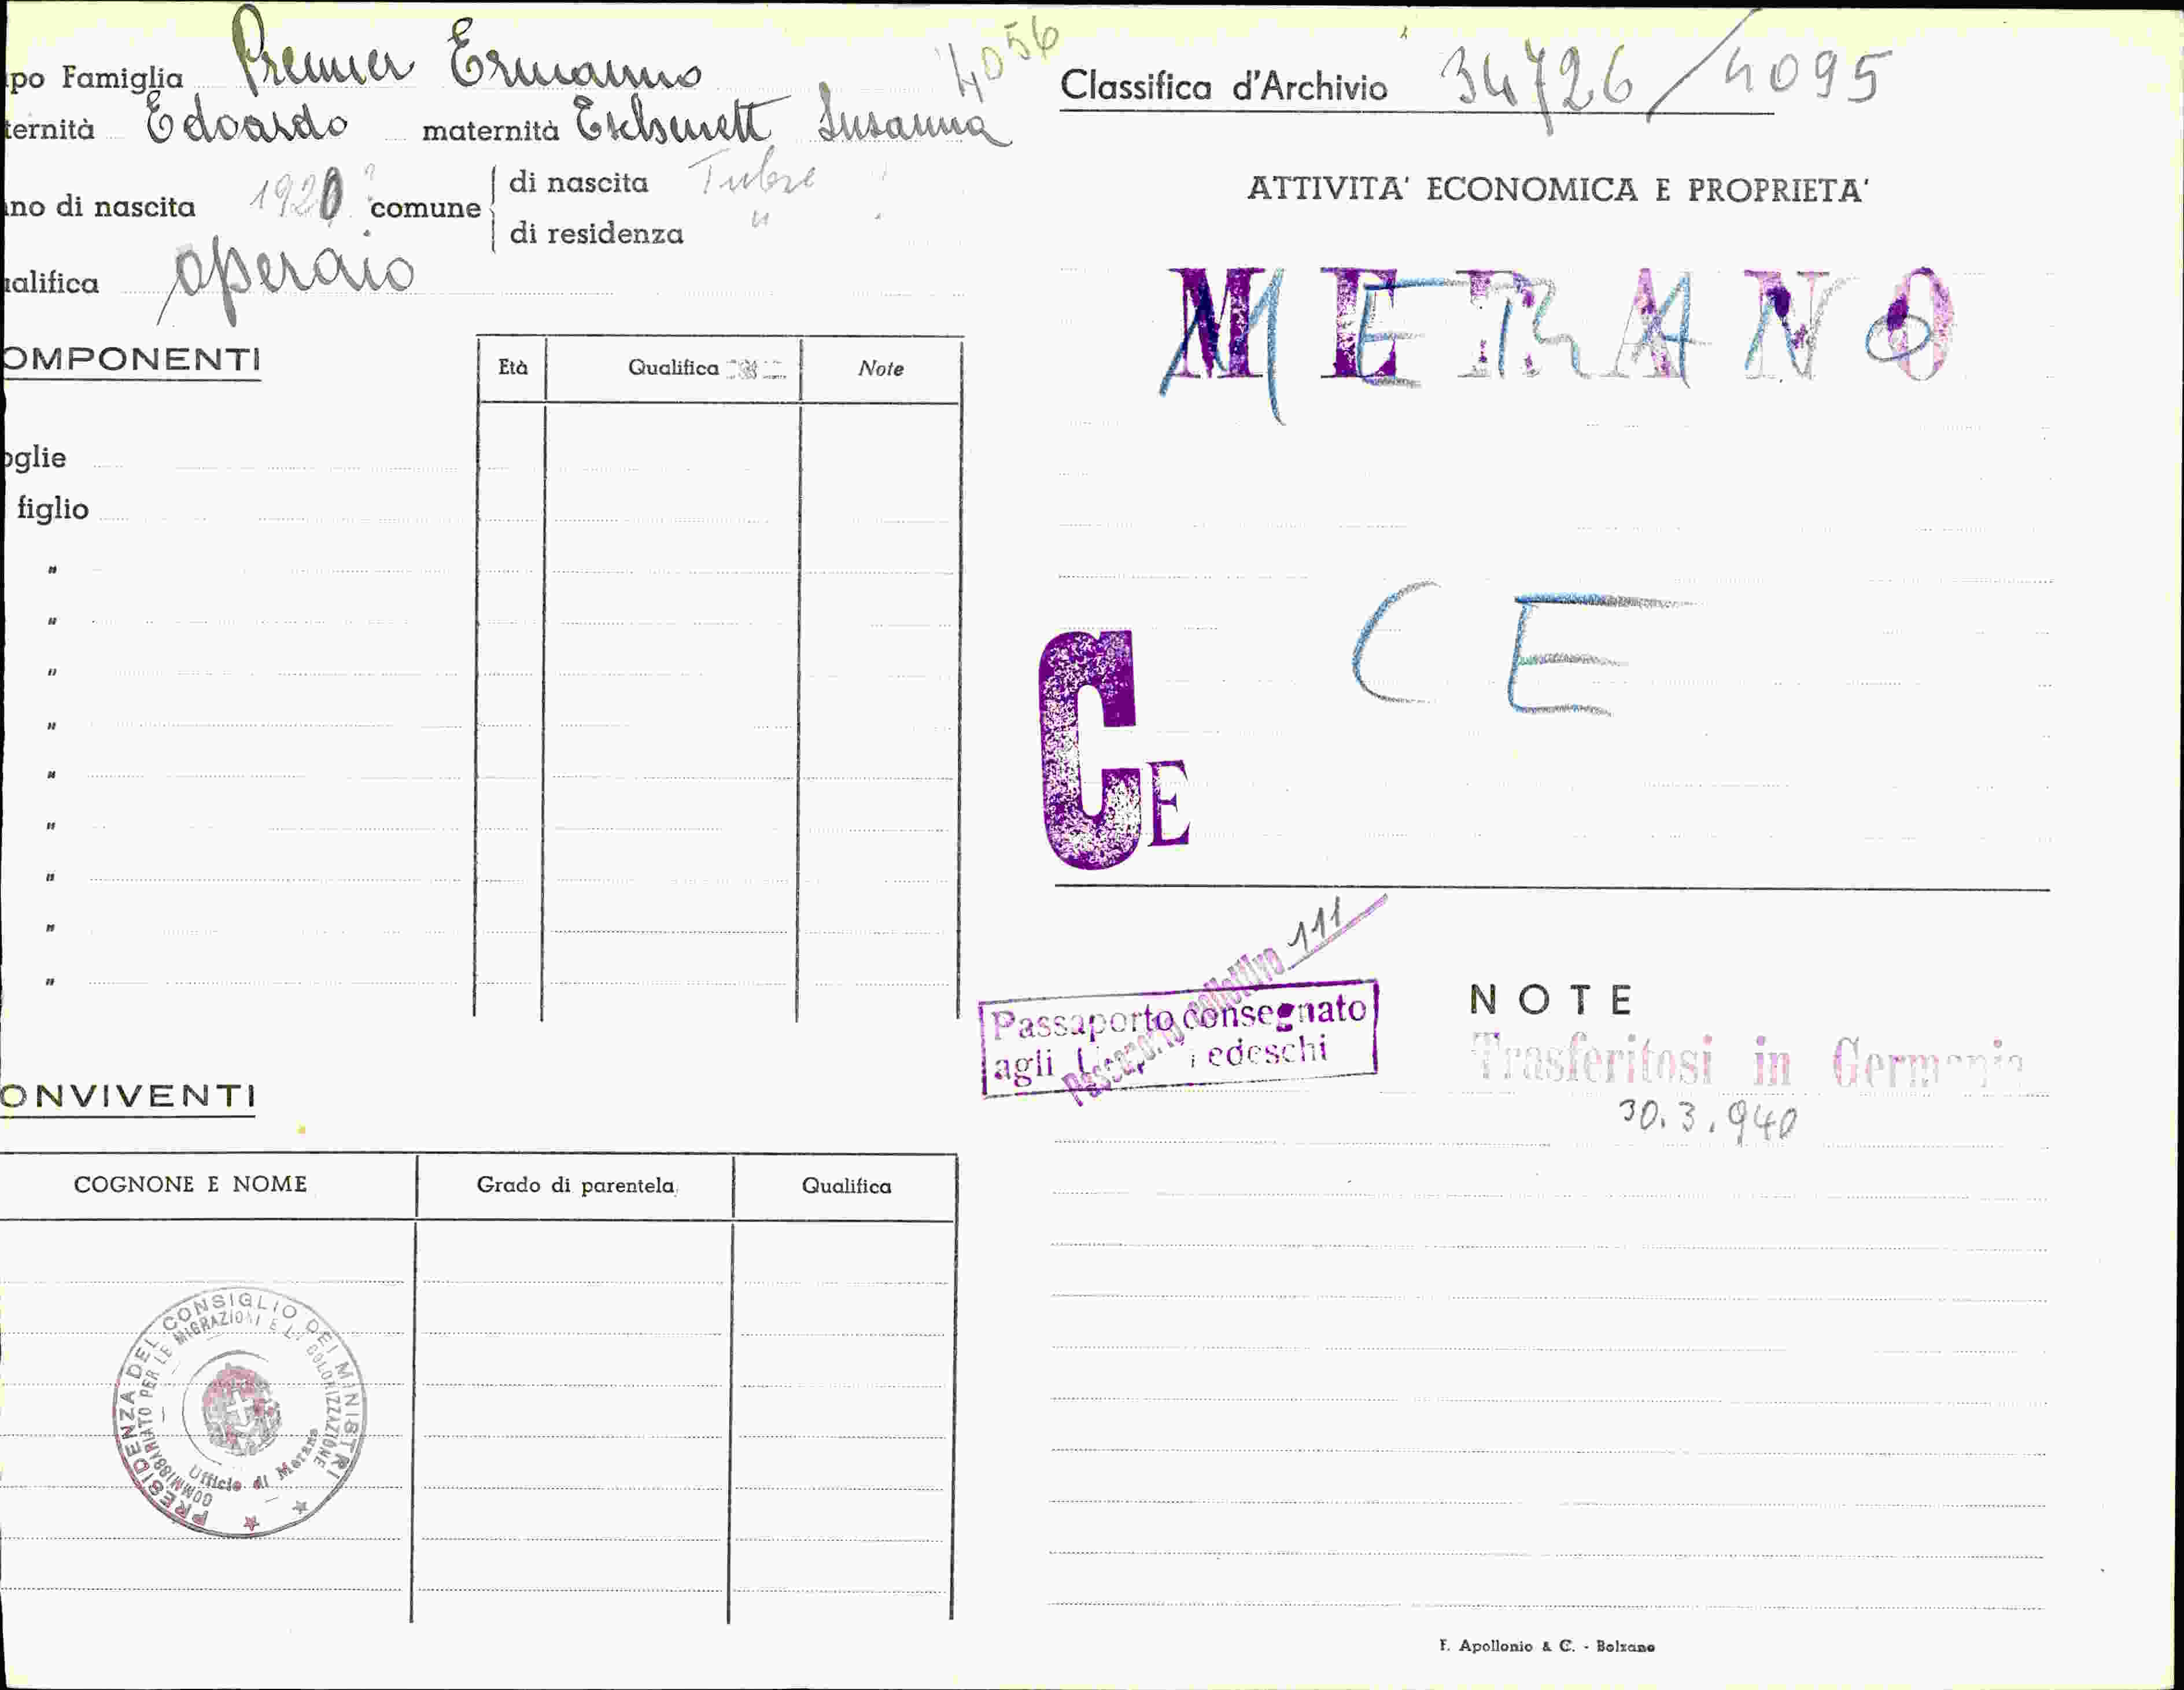 po Famiglia Premier Ermanno 4056
ternità Edoardo maternità Susanna
no di nascita 1920 ? comune di nascita Tubre
di residenza "
alifica operaio
OMPONENTI
Età Qualifica Note
oglie
figlio
"
"
"
"
"
"
"
"
"
ONVIVENTI
COGNONE E NOME Grado di parentela Qualifica
PRESIDENZA DEL CONSIGLIO DEI MINISTRI
COMMISSARIATO PER LE MIGRAZIONI E LA COLONIZZAZIONE
Ufficio di Merano
Classifica d'Archivio 34726/4095
ATTIVITA' ECONOMICA E PROPRIETA'
MERANO
MERANO
C E
CE
Passaporto collettivo 111
Passaporto consegnato
agli Tedeschi
NOTE
Trasferitosi in Germania
30.3.940
F. Apollonio & C. - Bolzano